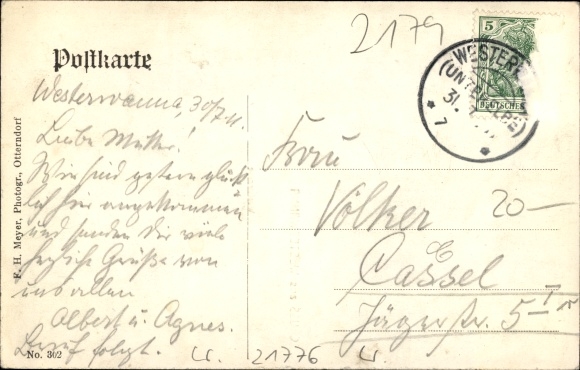 Postkarte
Westerwanna, 30/7.11.
Liebe Mutter!
Wir sind gestern glück-
lich hier angekommen
und senden Dir viele
herzliche Grüße von
uns allen
Albert u. Agnes.
Brief folgt.
No. 302
F. H. Meyer, Photogr., Otterndorf
2179
5
DEUTSCHES
WESTER
(UNTERELBE)
31.
7
Frau
Völker
20-
Cassel
Jägerstr. 5 I
21776